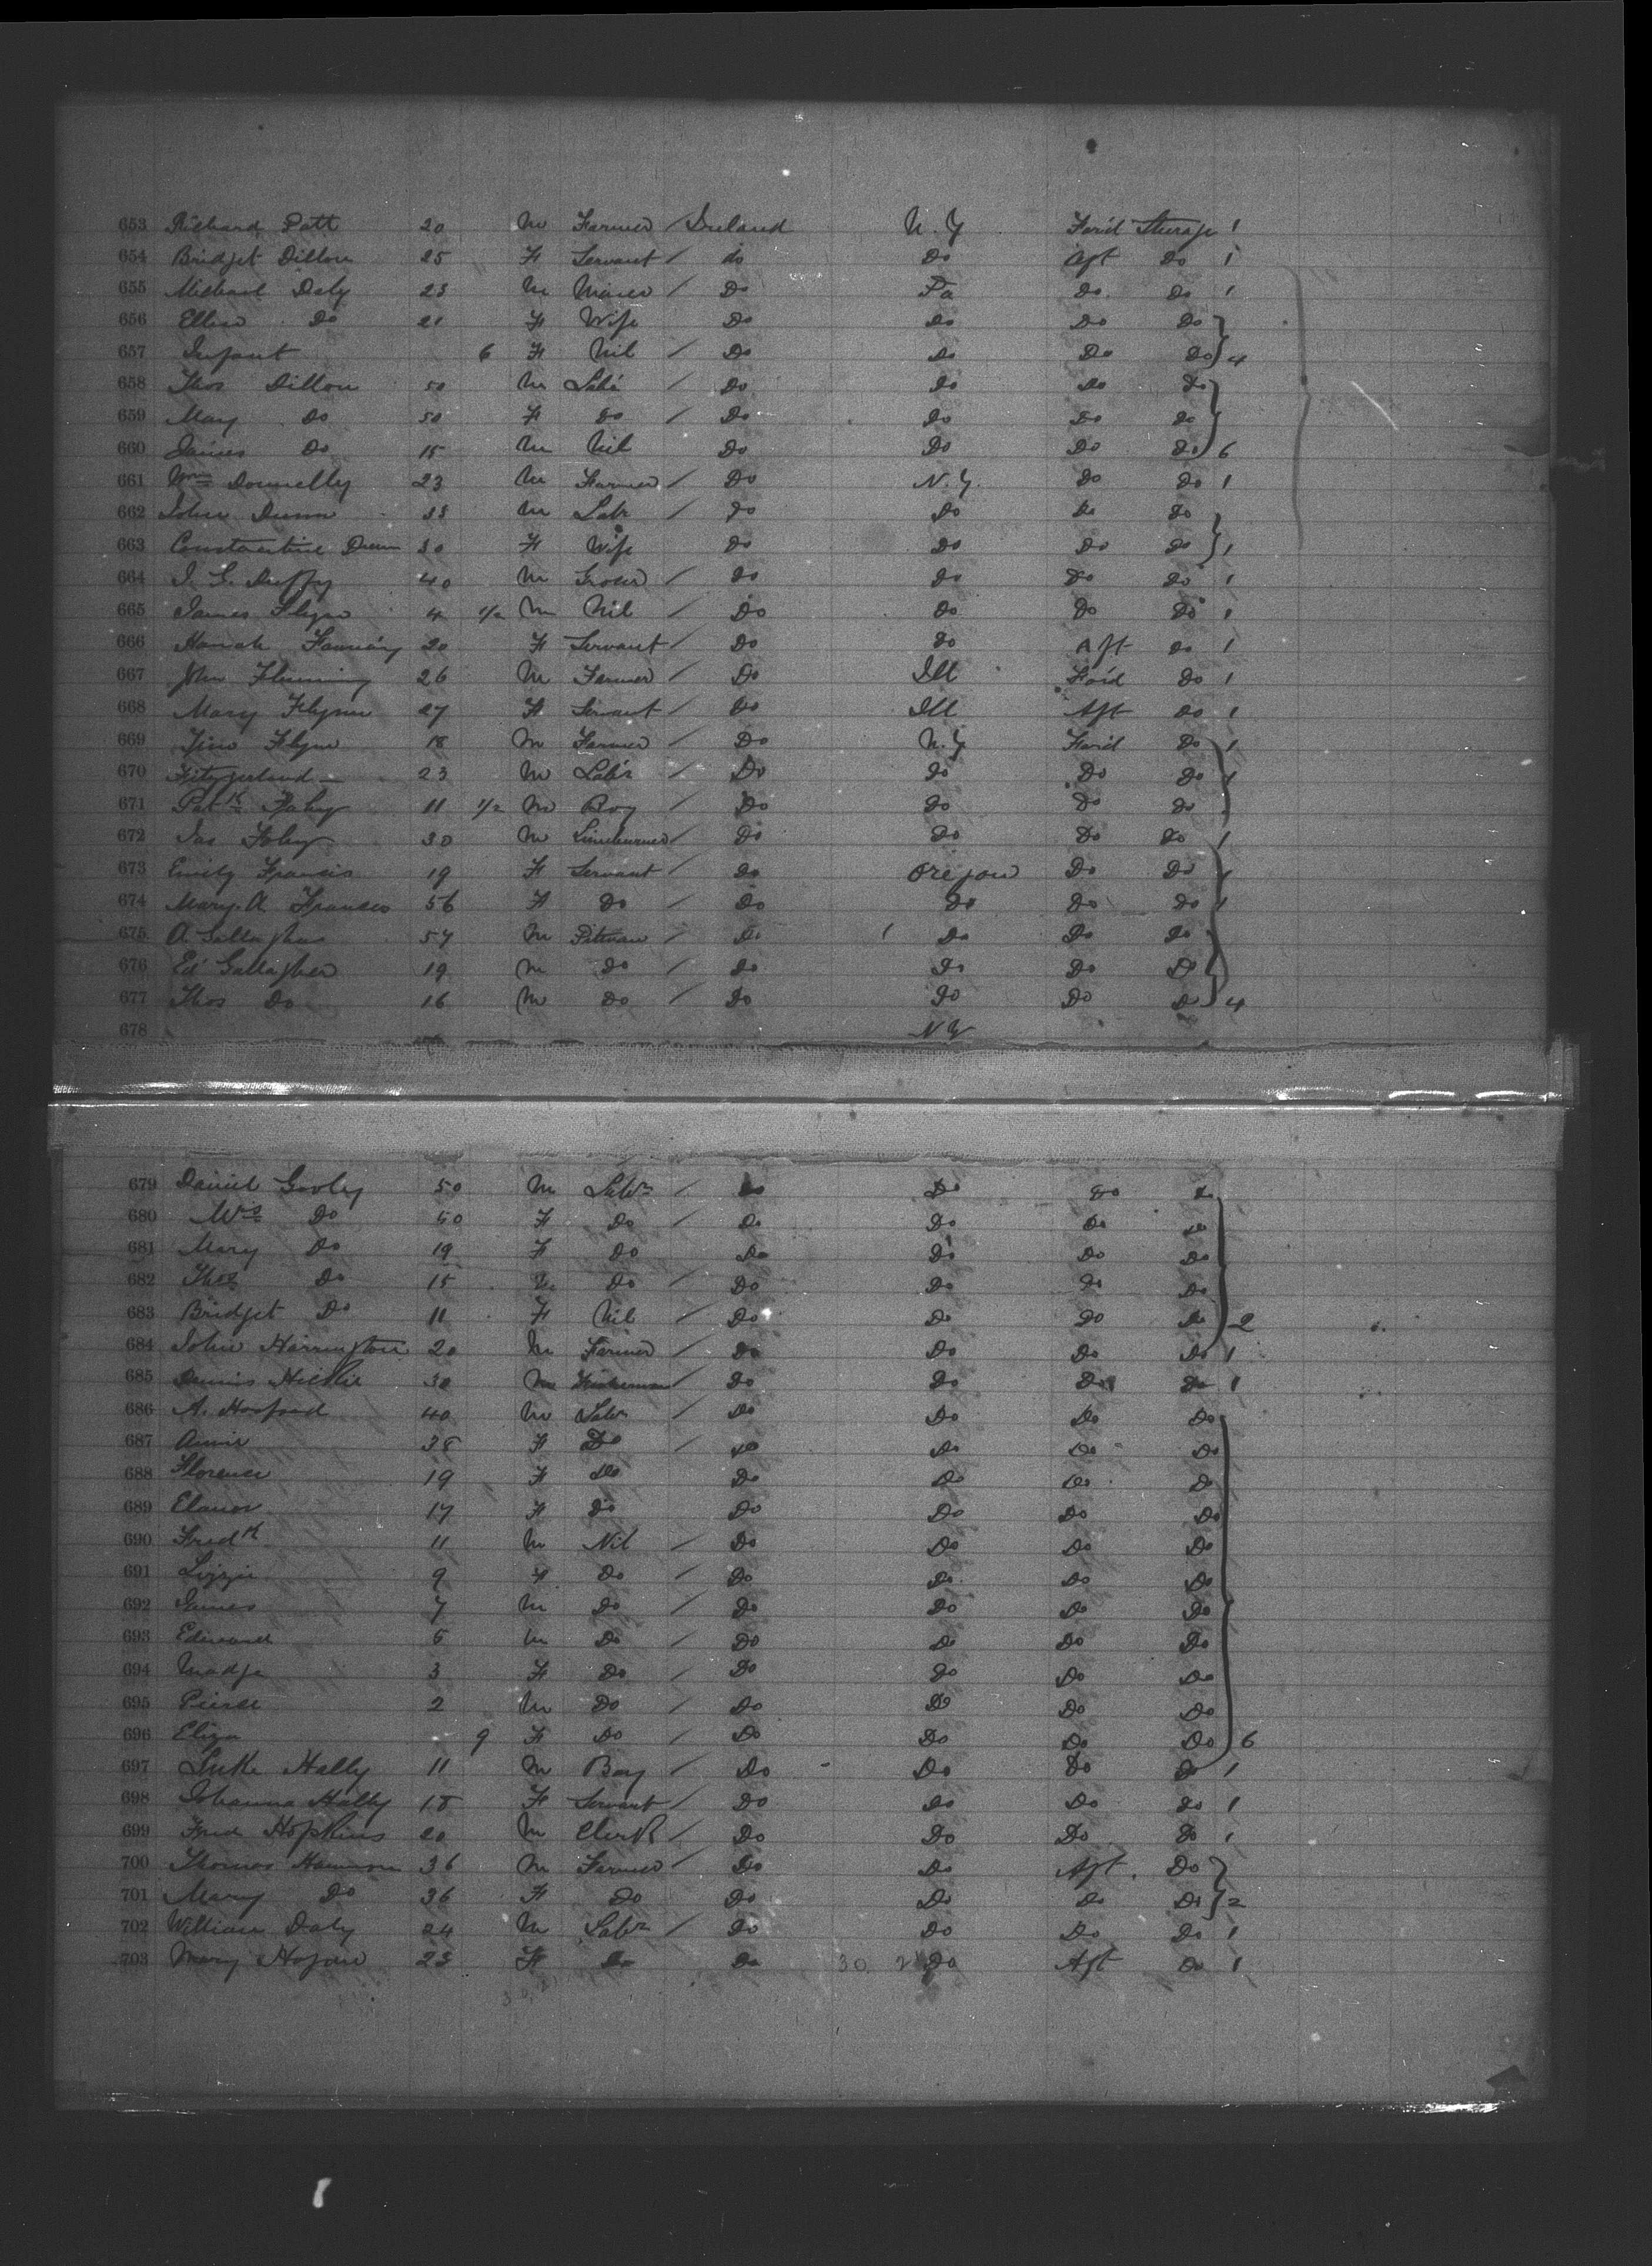 653 Richard Patt 20 M Farmer / Ireland N.Y. For'd Steerage 1
654 Bridget Dillon 25 F Servant / do Do Aft Do 1
655 Michael Daly 23 M Miner / Do Pa Do Do 1
656 Ellen Do 21 F Wife Do Do Do Do
657 Infant 6 F Nil / Do Do Do Do 4
658 Thos Dillon 50 M Labr Do Do Do Do
659 Mary Do 50 F Do / Do Do Do Do
660 James Do 15 M Nil Do Do Do Do 6
661 Wm Donnelly 23 M Farmer / Do N.Y. Do Do 1
662 John Dunn 35 M Labr / Do Do Do Do
663 Constantine Dunn 30 F Wife Do Do Do Do 1
664 Duffy 40 M Grocer / Do Do Do Do 1
665 James Flynn 4 1/2 M Nil / Do Do Do Do 1
666 Hanah Fanning 20 F Servant / Do Do Aft Do 1
667 John Flemming 26 M Farmer / Do Ill For'd Do 1
668 Mary Flynn 27 F Servant / Do Ill Aft Do 1
669 Flynn 18 M Farmer / Do N.Y. For'd Do 1
670 Fitzgerland 23 M Labr / Do Do Do Do 1
671 Patk Fahy 11 1/2 M Boy / Do Do Do Do
672 Jas Foley 30 M Limeburner / Do Do Do Do 1
673 Emily Francis 19 F Servant / Do Oregon Do Do 1
674 Mary A Frances 56 F Do / Do Do Do Do 1
675 A. Gallagher 57 M Pitman / Do Do Do Do
676 Ed Gallagher 19 M Do / Do Do Do Do
677 Thos Do 16 M Do / Do Do Do Do 4
678 N Y
679 Daniel Gooley 50 M Labr / Do Do Do Do
680 Mrs Do 50 F Do / Do Do Do Do
681 Mary Do 19 F Do Do Do Do Do
682 Thos Do 15 M Do / Do Do Do Do
683 Bridget Do 11 F Nil / Do Do Do Do 2
684 John Harrington 20 M Farmer / Do Do Do Do 1
685 Dennis Hickie 30 M Fisherman / Do Do Do Do 1
686 A. Horsford 40 M Labr / Do Do Do Do
687 Annie 38 F Do / Do Do Do Do
688 Florence 19 F Do Do Do Do Do
689 Elanor 17 F Do Do Do Do Do
690 Fredk 11 M Nil / Do Do Do Do
691 Lizzie 9 F Do / Do Do Do Do
692 James 7 M Do / Do Do Do Do
693 Edward 5 M Do / Do Do Do Do
694 Madge 3 F Do / Do Do Do Do
695 Pierce 2 M Do / Do Do Do Do
696 Eliza 9 F Do / Do Do Do Do 6
697 Luke Hally 11 M Boy / Do Do Do Do 1
698 Johanna Hally 18 F Servant / Do Do Do Do 1
699 Fred Hopkins 20 M Clerk / Do Do Do Do 1
700 Thomas 36 M Farmer / Do Do Aft Do
701 Mary Do 36 F Do Do Do Do Do 2
702 William Daly 24 M Labr / Do Do Do Do 1
703 Mary 23 F Do Do 30 2 Do Aft Do 1